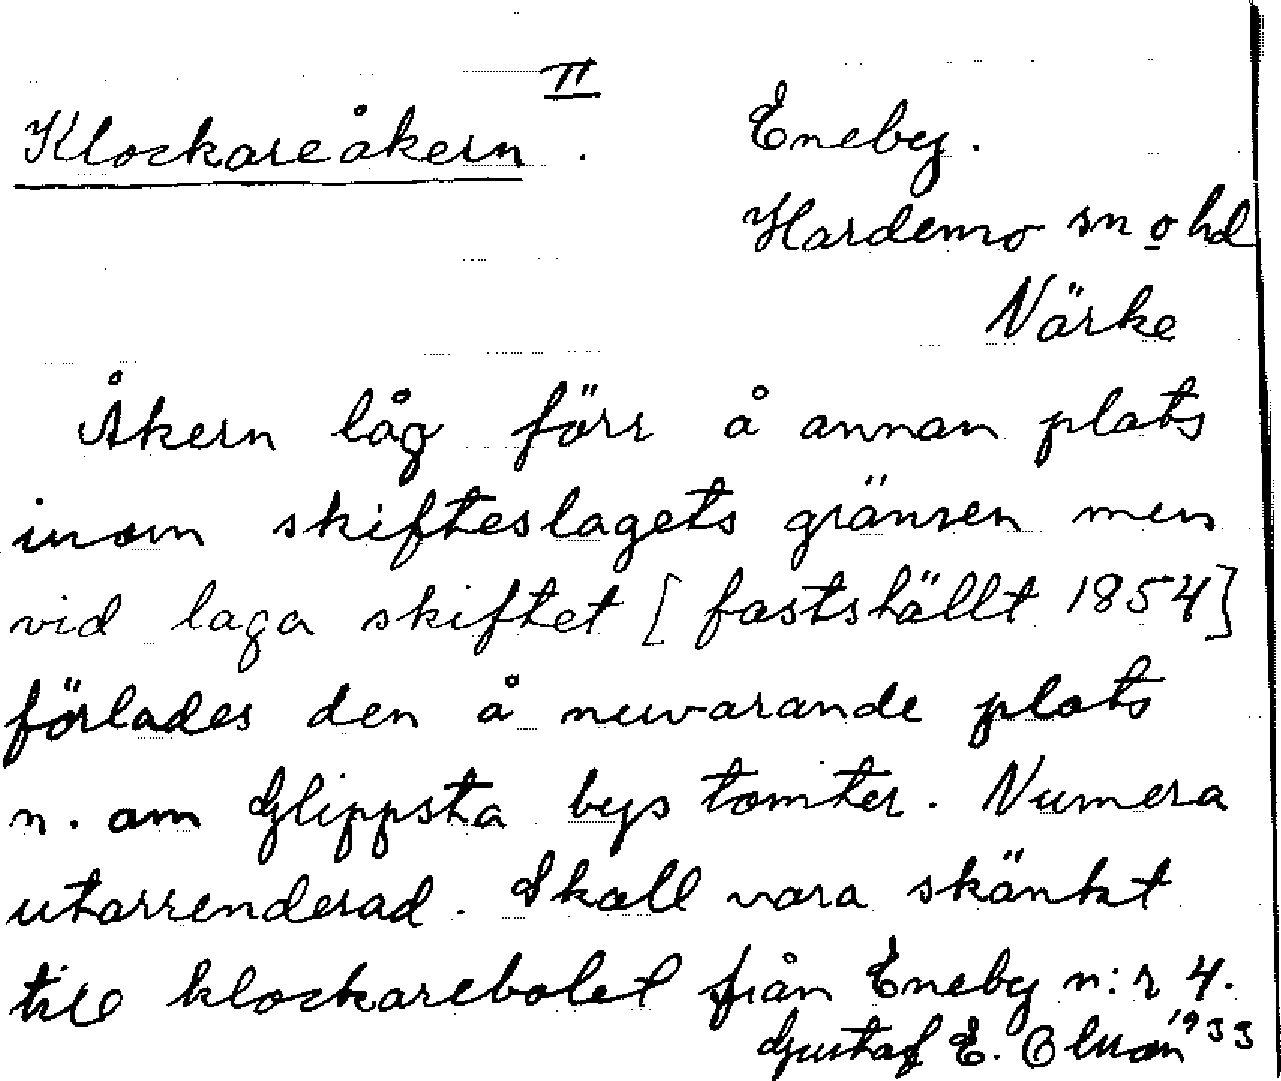 II
Klockareåkern . Eneby.
Hardemo sn o hd
Närke
Åkern låg förr å annan plats
inom skifteslagets gränsen men
vid laga skiftet [ fastställt 1854]
förlades den å nuvarande plats
n. om Glippsta bys tomter. Numera
utarrenderad. Skall vara skänkt
till klockarebolet från Eneby n:r 4.
Gustaf E. Olsson 1933